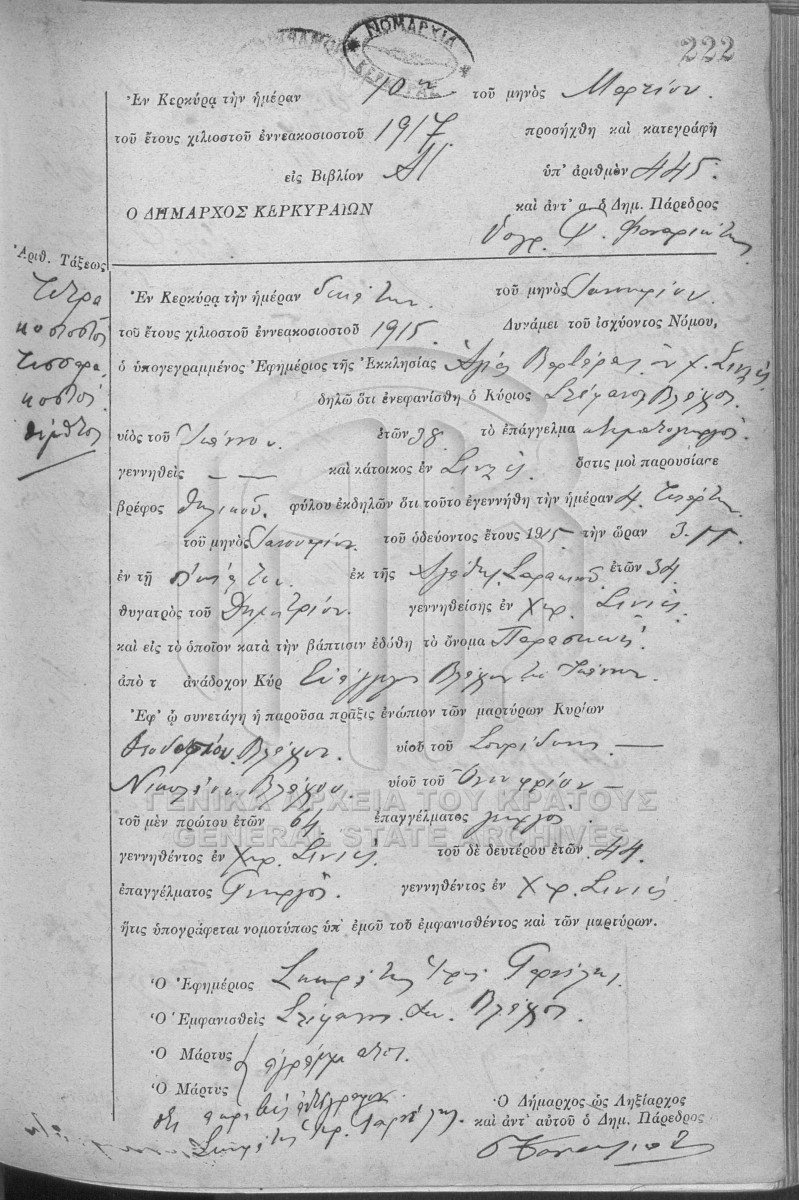 ΝΟΜΑΡΧΙΑ
ΚΕΡΚΥΡΑΣ
222
Ἐν Κερκύρᾳ τὴν ἡμέραν 10 τοῦ μηνὸς Μαρτίου.
τοῦ ἔτους χιλιοστοῦ ἐννεακοσιοστοῦ 1917 προσήχθη καὶ κατεγράφη
εἰς Βιβλίον ὑπ' ἀριθμὸν 445.
Ο ΔΗΜΑΡΧΟΣ ΚΕΡΚΥΡΑΙΩΝ καὶ ἀντ' α. ὁ Δημ. Πάρεδρος
Ἀριθ. Τάξεως
Τετρα
κοσιοστὸν
τεσσαρα
κοστὸν
πέμπτον
Ἐν Κερκύρᾳ τὴν ἡμέραν δεκάτην. τοῦ μηνὸς Ἰανουαρίου.
τοῦ ἔτους χιλιοστοῦ ἐννεακοσιοστοῦ 1915. Δυνάμει τοῦ ἰσχύοντος Νόμου,
ὁ ὑπογεγραμμένος Ἐφημέριος τῆς Ἐκκλησίας Ἁγίας Βαρβάρας ἐν χ. Σινιές
δηλῶ ὅτι ἐνεφανίσθη ὁ Κύριος Στέφανος Βλάχος.
υἱὸς τοῦ Ἰωάννου. ἐτῶν 38. τὸ ἐπάγγελμα κτηματογεωργός.
γεννηθεὶς — — καὶ κάτοικος ἐν Σινιές. ὅστις μοὶ παρουσίασε
βρέφος θηλυκοῦ. φύλου ἐκδηλῶν ὅτι τοῦτο ἐγεννήθη τὴν ἡμέραν 4. Τετάρτην.
τοῦ μηνὸς Ἰανουαρίου. τοῦ ὁδεύοντος ἔτους 1915. τὴν ὥραν 3. π.
ἐν τῇ οἰκίᾳ του. ἐκ τῆς ἐτῶν 34
θυγατρὸς τοῦ Δημητρίου. γεννηθείσης ἐν χωρ. Σινιές.
καὶ εἰς τὸ ὁποῖον κατὰ τὴν βάπτισιν ἐδόθη τὸ ὄνομα Παρασκευή.
ἀπὸ τ ἀνάδοχον Κύρ Βλάχον του Ἰωάννου.
Ἐφ' ᾧ συνετάγη ἡ παροῦσα πρᾶξις ἐνώπιον τῶν μαρτύρων Κυρίων
Θεοδοσίου Βλάχου. υἱοῦ τοῦ Σπυρίδωνος —
Νικολάου Βλάχου. υἱοῦ τοῦ Ὀνουφρίου —
ΓΕΝΙΚΑ ΑΡΧΕΙΑ ΤΟΥ ΚΡΑΤΟΥΣ
τοῦ μὲν πρώτου ἐτῶν 64. ἐπαγγέλματος γεωργός.
GENERAL STATE ARCHIVES
γεννηθέντος ἐν χωρ. Σινιές. τοῦ δὲ δευτέρου ἐτῶν. 44.
ἐπαγγέλματος Γεωργός. γεννηθέντος ἐν χωρ. Σινιές.
ἥτις ὑπογράφεται νομοτύπως ὑπ' ἐμοῦ τοῦ ἐμφανισθέντος καὶ τῶν μαρτύρων.
Ὁ Ἐφημέριος
Ὁ Ἐμφανισθεὶς Στέφανος Ἰω. Βλάχος.
Ὁ Μάρτυς
ἀγράμματοι.
Ὁ Μάρτυς
Ὁ Δήμαρχος ὡς Ληξίαρχος
καὶ ἀντ' αὐτοῦ ὁ Δημ. Πάρεδρος